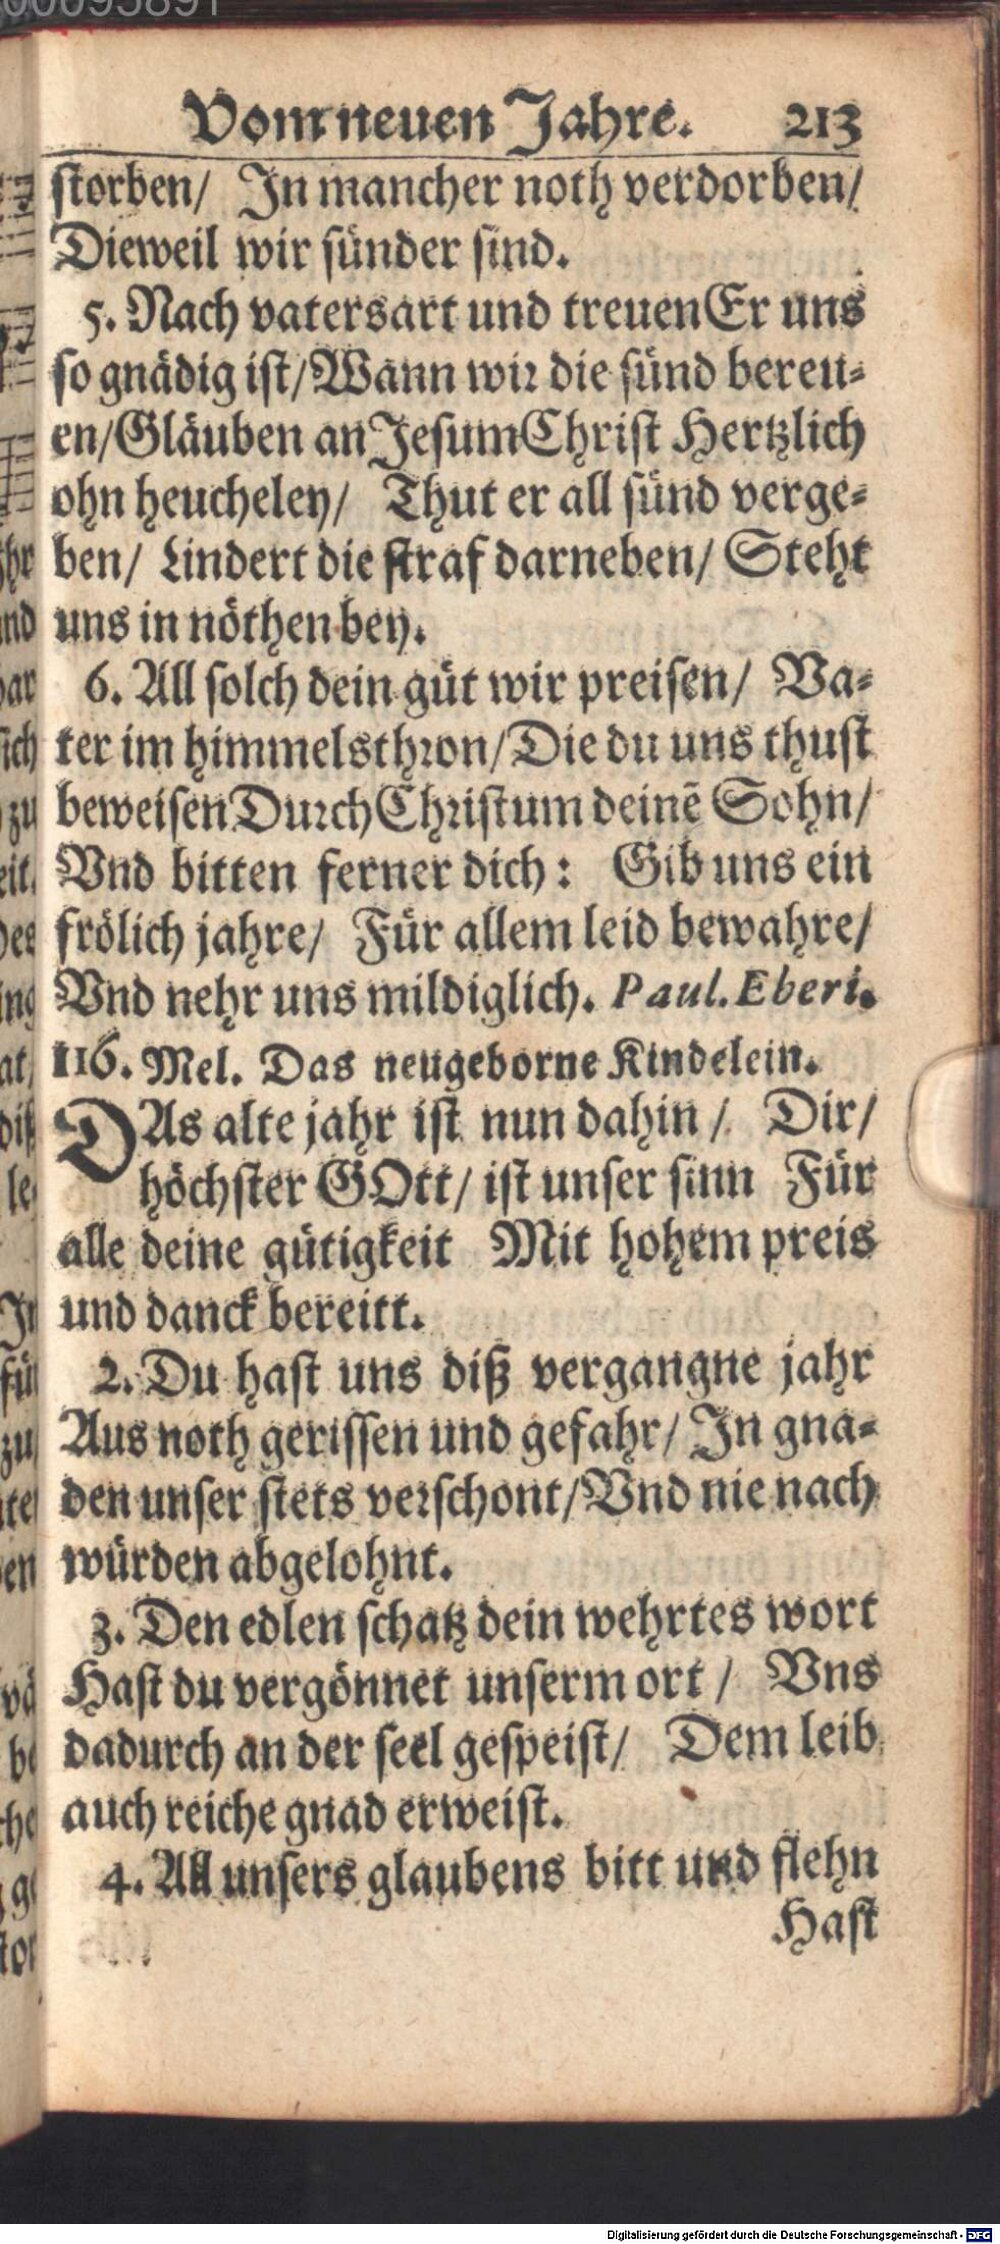 Vom neuen Jahre. 213
storben/ In mancher noth verdorben/
Dieweil wir sünder sind.
5. Nach vatersart und treuen Er uns
so gnädig ist/ Wann wir die sünd bereu-
en/ Gläuben an Jesum Christ Hertzlich
ohn heucheley/ Thut er all sünd verge-
ben/ Lindert die straf darneben/ Steht
uns in nöthen bey.
6. All solch dein güt wir preisen/ Va-
ter im himmelsthron/ Die du uns thust
beweisen Durch Christum deinē Sohn/
Vnd bitten ferner dich: Gib uns ein
frölich jahre/ Für allem leid bewahre/
Vnd nehr uns mildiglich. Paul. Eberi.
116. Mel. Das neugeborne Kindelein.
DAs alte jahr ist nun dahin/ Dir/
höchster GOtt/ ist unser sinn Für
alle deine gütigkeit Mit hohem preis
und danck bereitt.
2. Du hast uns diß vergangne jahr
Aus noth gerissen und gefahr/ In gna-
den unser stets verschont/ Vnd nie nach
würden abgelohnt.
3. Den edlen schatz dein wehrtes wort
Hast du vergönnet unserm ort/ Vns
dadurch an der seel gespeist/ Dem leib
auch reiche gnad erweist.
4. All unsers glaubens bitt und flehn
Hast
Digitalisierung gefördert durch die Deutsche Forschungsgemeinschaft - DFG